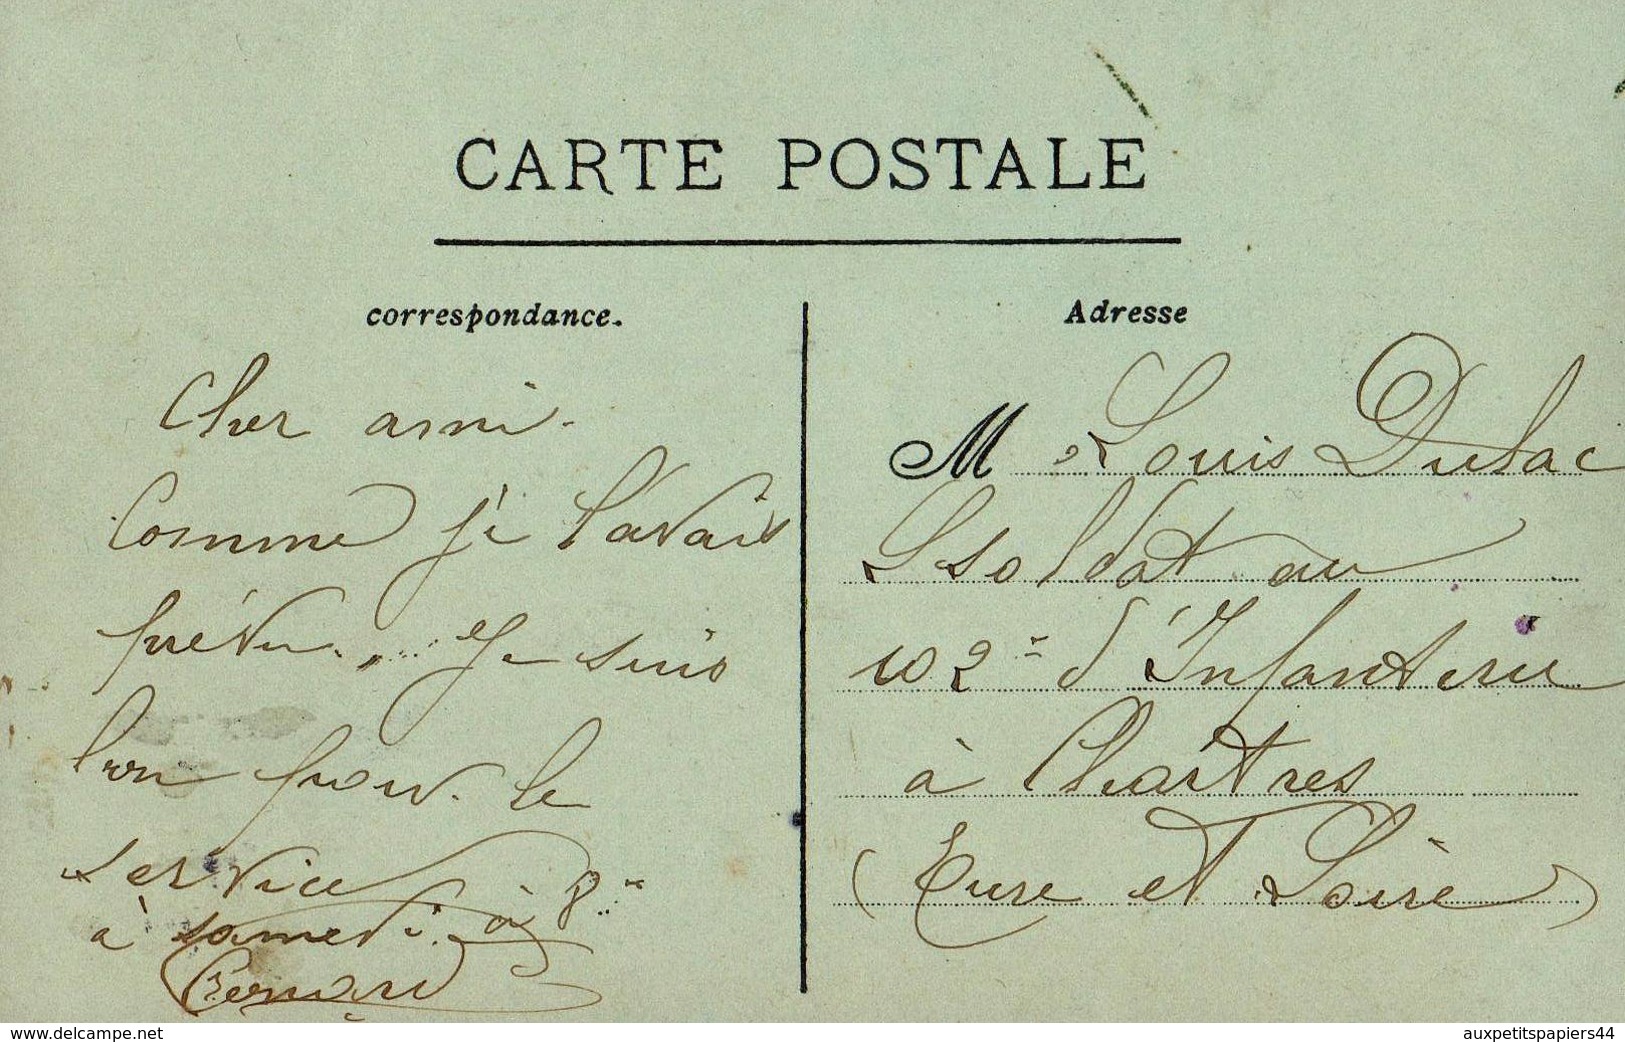 CARTE POSTALE
correspondance.
Cher ami.
Comme je t'avais
prévu, Je suis
bon pour le
service à 8
à samedi. à
Bernard
Adresse
M Louis Dulac
Soldat au
102e d'Infanterie
à Chartres
(Eure et Loire)
www.delcampe.net
auxpetitspapiers44